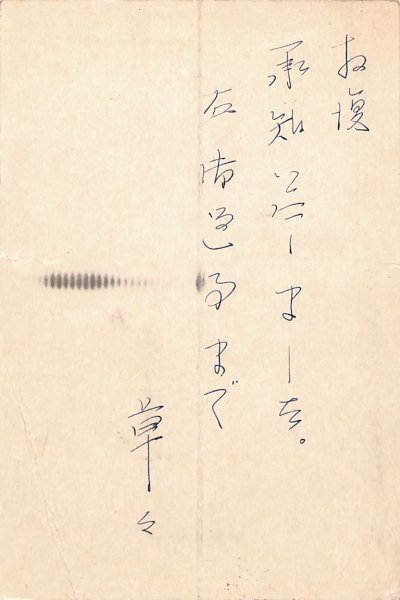 拝復
承知いたしました。
右御返事まで
草々